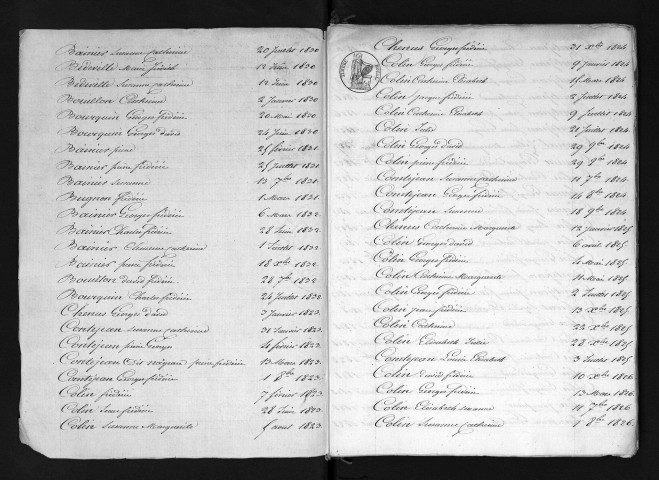 Bainier Suzanne Catherine 20 Juillet 1820
Bidéville Marie 12 Juin 1820
Bidéville Suzanne Catherine 12 Juin 1820
Bouillon Catherine 2 Janvier 1820
Bourquin Georges frédéric 20 Mai 1820
Bourquin Georges David 24 Juin 1820
Bainier 25 février 1821
Bainier frédéric 25 Juillet 1821
Bainier Suzanne 13 7bre 1821
Bugnon frédéric 1 Mars 1821
Bainier Georges frédéric 6 Mars 1822
Bainier Charles frédéric 28 Juin 1822
Bainier Suzanne Catherine 1 Juillet 1822
Bainier frédéric 18 Xbre 1822
Bouillon David frédéric 28 7bre 1822
Bourquin Charles frédéric 24 Juillet 1822
Chenus Georges David 3 Janvier 1823
Contejean Suzanne Catherine 31 Janvier 1823
Contejean pierre Georges 4 février 1823
Contejean pierre frédéric 13 Mars 1823
Contejean Georges frédéric 1 8bre 1823
Colin frédéric 7 février 1823
Colin frédéric 28 Juin 1823
Colin Suzanne Marguerite avril 1823
Chenus Georges frédéric 31 Xbre 1824
Colin Georges frédéric 9 Janvier 1824
Colin Catherine Elisabeth 15 Mars 1824
Colin Jacques frédéric 2 Juillet 1824
Colin Catherine Elisabeth 9 Juillet 1824
Colin Julie 21 Juillet 1824
Colin Georges David 29 9bre 1824
Colin pierre frédéric 29 9bre 1824
Contejean Suzanne Catherine 11 7bre 1824
Contejean Georges frédéric 14 8bre 1824
Contejean Suzanne 18 9bre 1824
Chenus Catherine Marguerite 12 Janvier 1825
Colin Georges David 6 avril 1825
Colin Georges frédéric 4 Mai 1825
Colin Catherine Marguerite 11 Mai 1825
Colin Georges frédéric 2 Juillet 1825
Colin frédéric 13 Xbre 1825
Colin Catherine 22 Xbre 1825
Colin Elisabeth Julie 28 Xbre 1825
Contejean Louise Elisabeth 3 Juillet 1825
Colin David frédéric 10 Xbre 1826
Colin Georges frédéric 13 Mars 1826
Colin Elisabeth Suzanne 11 7bre 1826
Colin Suzanne Catherine 1 9bre 1826